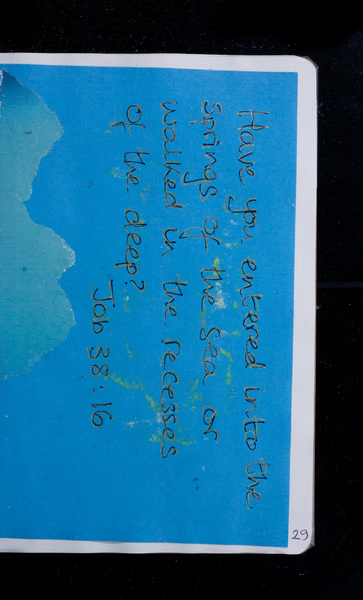 Have you entered into the
springs of the sea or
walked in the recesses
of the deep?
Job 38:16
29